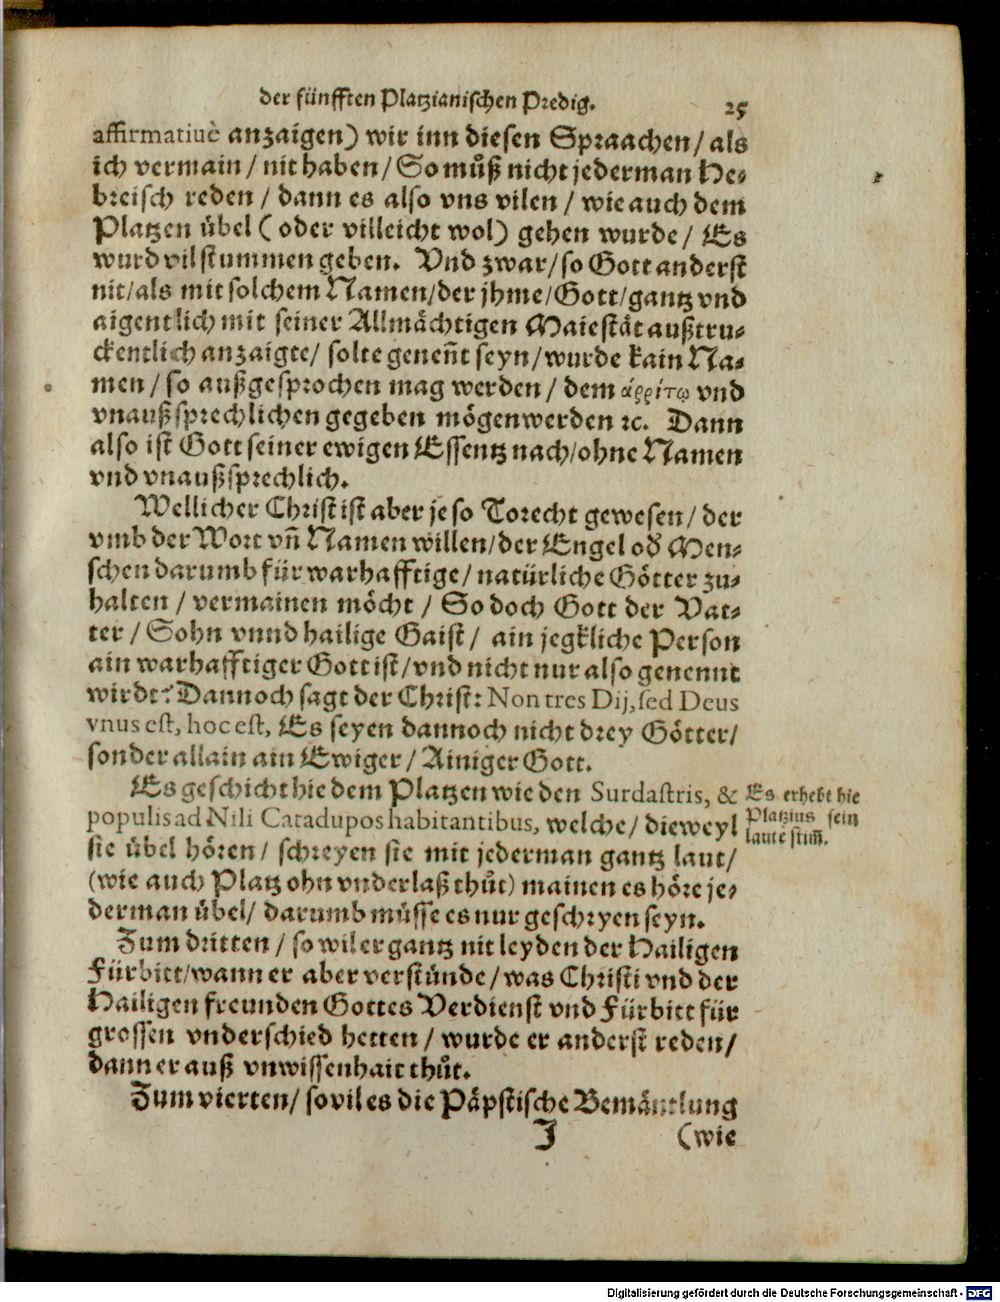 der fünfften Platzianischen Predig. 25
affirmatiuè anzaigen) wir inn diesen Spraachen / als
ich vermain / nit haben / So můß nicht jederman He-
breisch reden / dann es also vns vilen / wie auch dem
Platzen übel ( oder villeicht wol) gehen wurde / Es
wurd vil stummen geben. Vnd zwar / so Gott anderst
nit / als mit solchem Namen / der jhme / Gott / gantz vnd
aigentlich mit seiner Allmächtigen Maiestät außtru-
ckentlich anzaigte / solte geneñt seyn / wurde kain Na-
men / so außgesprochen mag werden / dem ἀῤῥίτῳ vnd
vnaußsprechlichen gegeben mögen werden ꝛc. Dann
also ist Gott seiner ewigen Essentz nach / ohne Namen
vnd vnaußsprechlich.
Wellicher Christ ist aber je so Torecht gewesen / der
vmb der Wort vñ Namen willen / der Engel oď Men-
schen darumb für warhafftige / natürliche Götter zu-
halten / vermainen möcht / So doch Gott der Vat-
ter / Sohn vnnd hailige Gaist / ain jegkliche Person
ain warhafftiger Gott ist / vnd nicht nur also genennt
wirdt? Dannoch sagt der Christ: Non tres Dij, sed Deus
vnus est, hoc est, Es seyen dannoch nicht drey Götter /
sonder allain ain Ewiger / Ainiger Gott.
Es geschicht hie dem Platzen wie den Surdastris, &
populis ad Nili Catadupos habitantibus, welche / dieweyl
sie übel hören / schreyen sie mit jederman gantz laut /
(wie auch Platz ohn vnderlaß thůt) mainen es höre je-
derman übel / darumb müsse es nur geschryen seyn.
Es erhebt hie
Platzius sein
laute stim̃.
Zum dritten / so wil er gantz nit leyden der Hailigen
Fürbitt / wann er aber verstünde / was Christi vnd der
Hailigen freunden Gottes Verdienst vnd Fürbitt für
grossen vnderschied hetten / wurde er anderst reden /
dann er auß vnwissenhait thůt.
Zum vierten / so vil es die Päpstische Bemäntlung
J (wie
Digitalisierung gefördert durch die Deutsche Forschungsgemeinschaft - DFG